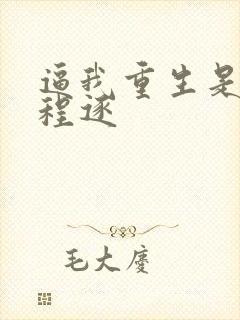 逼我重生是
程逐
毛大庆